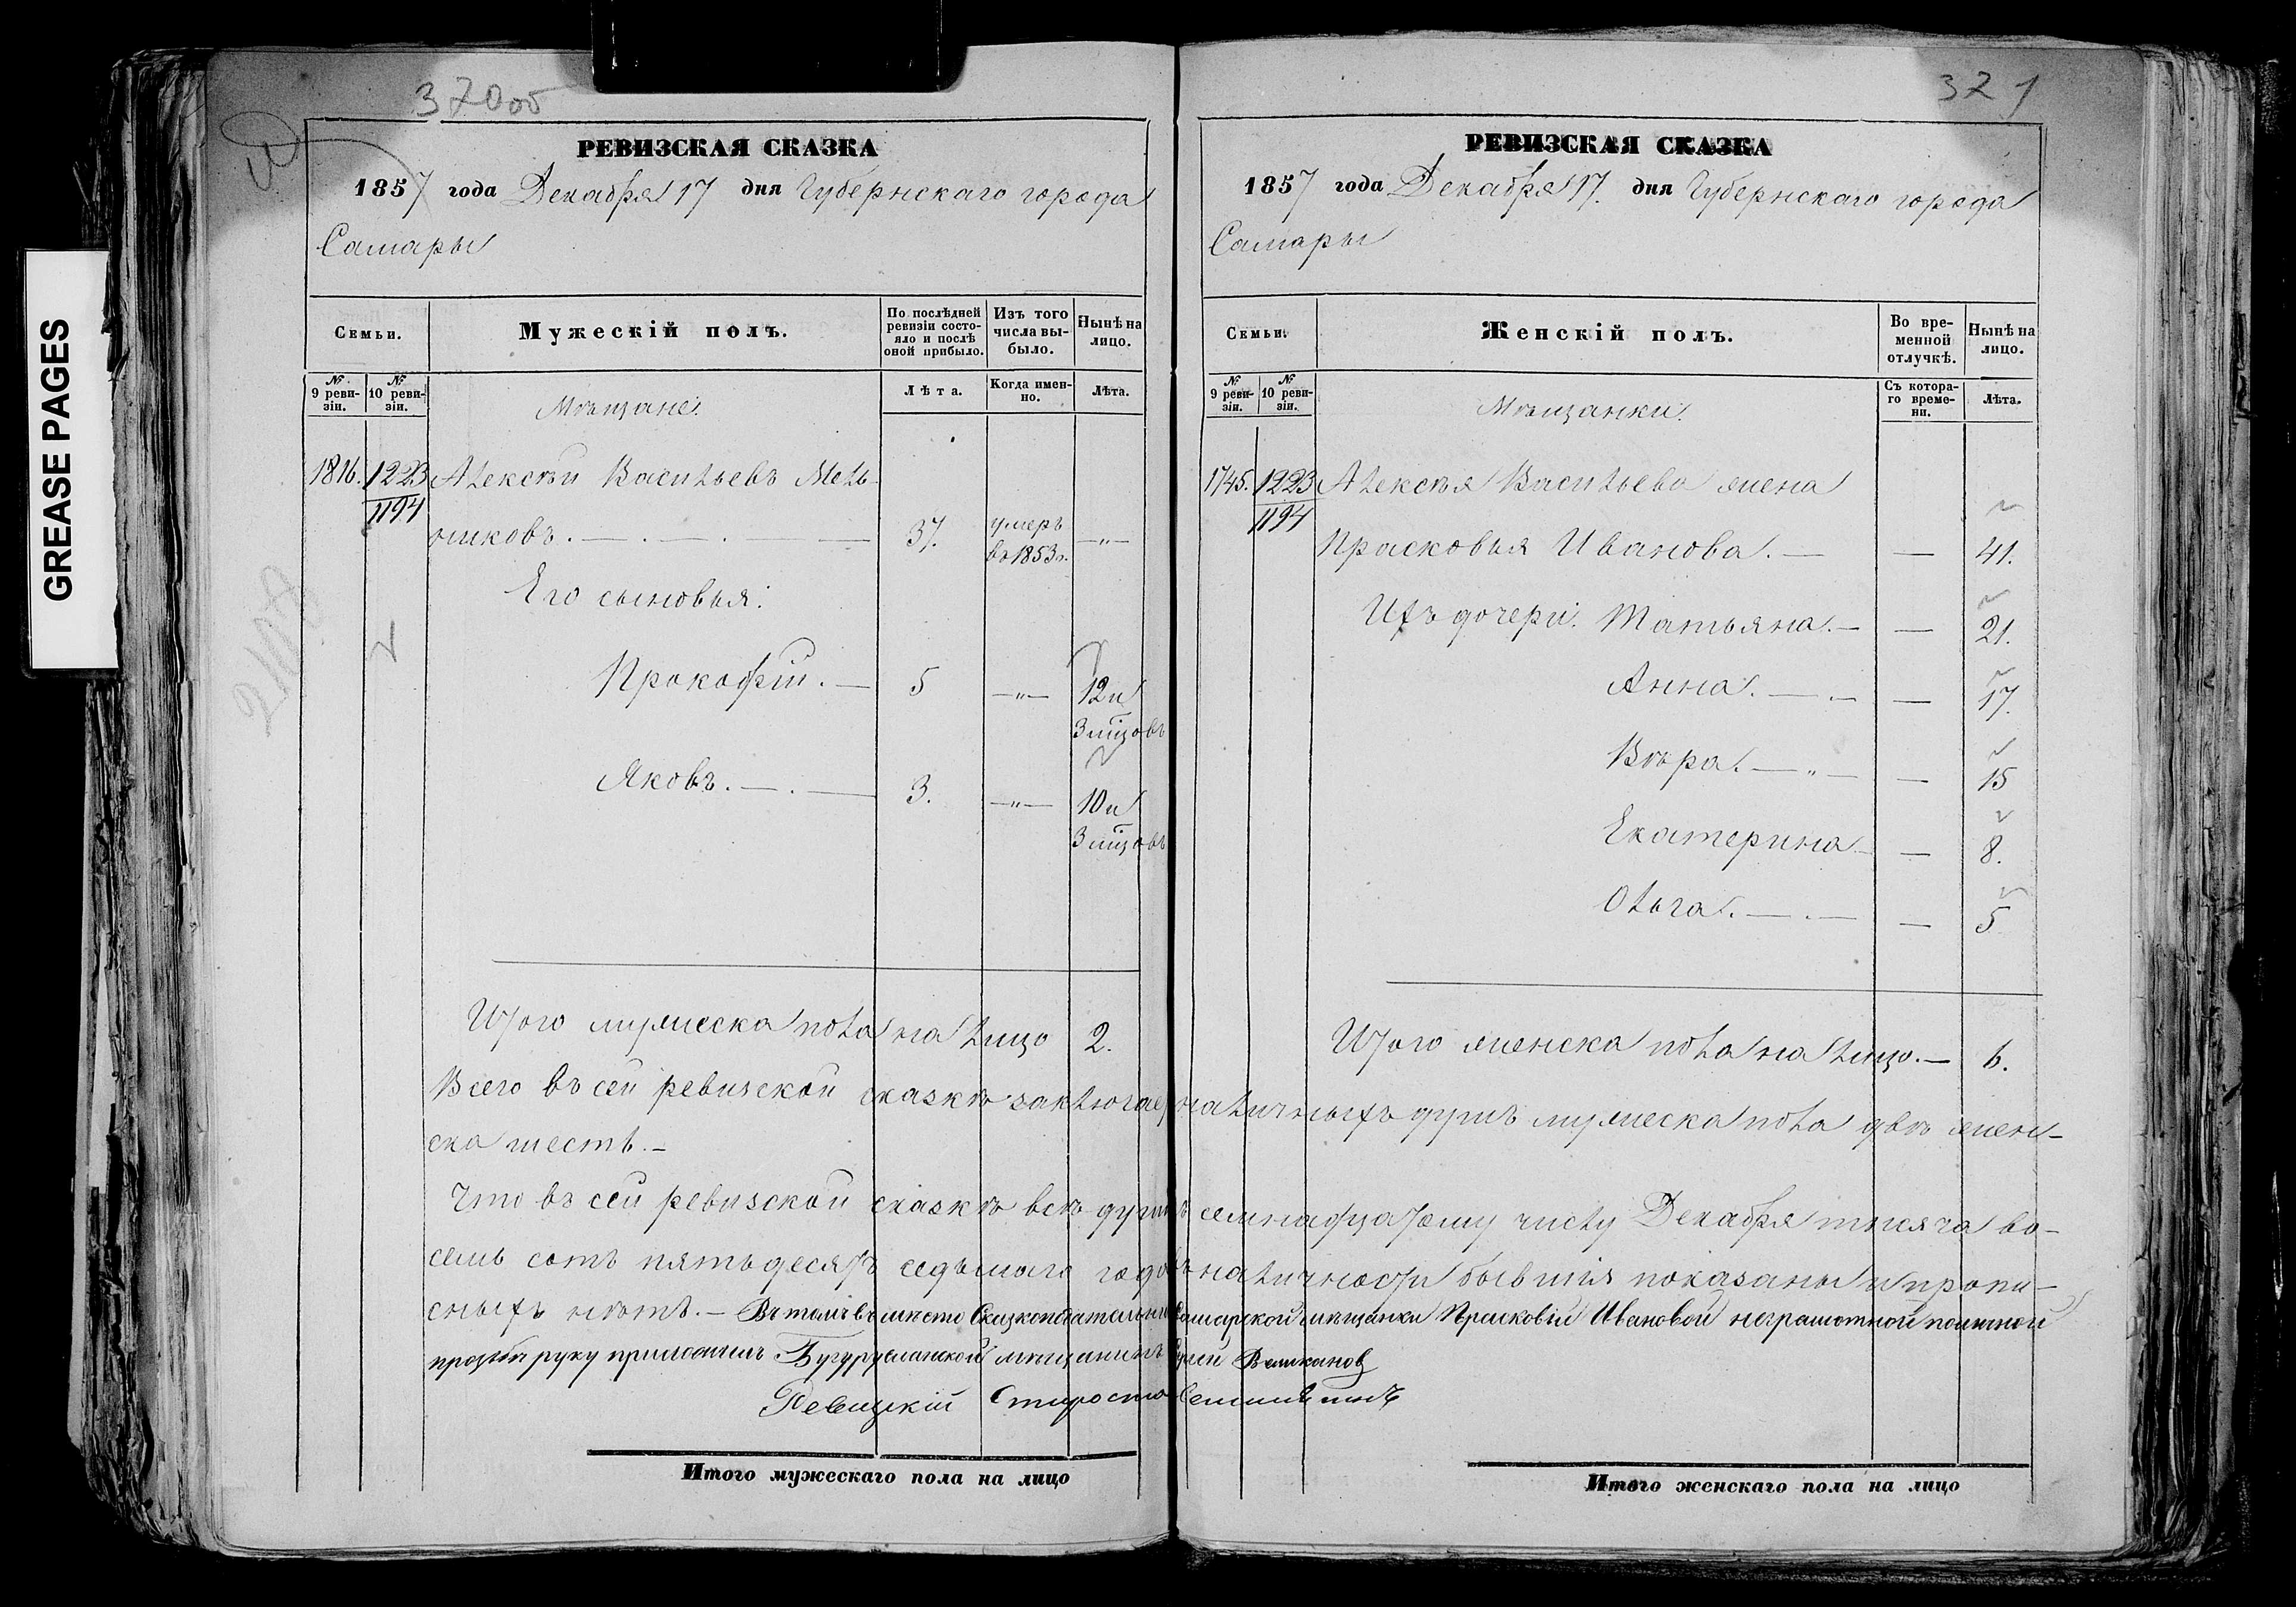 GREASE PAGES
370об
РЕВИЗСКАЯ СКАЗКА
1857 года Декабря 17 дня Губернскаго города
Самары
Семьи.
Мужескій полъ.
По послѣдней ревизіи состо-
яло и послѣ оной прибыло.
Изъ того числа вы-
было.
Нынѣ на лицо.
№ 9 реви-
зіи.
№ 10 реви-
зіи.
Лѣта.
Когда имен-
но.
Лѣта.
Мѣщане.
1816. 1223 Алексѣй Васильевъ Мель-
1194
никовъ. 37. умеръ
въ 1853 г. —"—
Его сыновья:
Прокофій. — 5 —"— 12 и
3 мцовъ
Яковъ. — 3. —"— 10 и
3 мцовъ
Итого мужеска пола на лицо 2.
321
РЕВИЗСКАЯ СКАЗКА
1857 года Декабря 17. дня Губернскаго города
Самары
Семьи.
Женскій полъ.
Во вре-
менной отлучкѣ.
Нынѣ на лицо.
№ 9 реви-
зіи.
№ 10 реви-
зіи.
Съ котора-
го време-
ни.
Лѣта.
Мѣщанки.
1745. 1223 Алексѣя Васильева жена
1194
Прасковья Иванова. — — 41.
Ихъ дочери. Татьяна. — — 21.
Анна. — — 17.
Вѣра. — " — — 15
Екатерина — — 8.
Ольга. — — 5
Итого женска пола на лицо. — 6.
Всего въ сей ревизской сказкѣ заключае наличныхъ душъ мужеска пола двѣ жен-
ска шесть. —
Что въ сей ревизской сказкѣ всѣ души семнадцатому числу Декабря тысяча во-
семь сотъ пятьдесятъ седьмаго года въ наличности бывшія показаны и пропи-
сныхъ нѣтъ. — Въ томъ вмѣсто Сказкоподательницы Самарской мѣщанки Прасковіи Ивановой неграмотной поличной
прозьбѣ руку приложилъ Бугурусланской мѣщанинъ Великановъ
Староста
Итого мужескаго пола на лицо
Итого женскаго пола на лицо